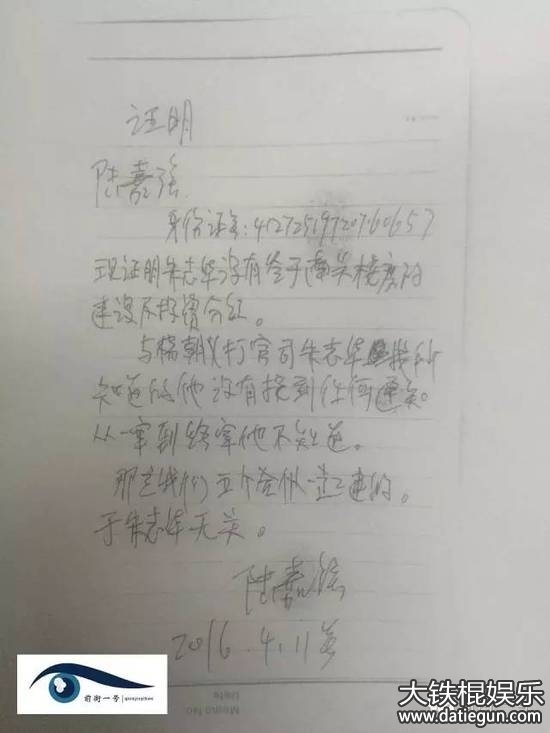 证明
陆嘉强
身份证号:412725197207060657
现证明朱志华没有参于南关楼房的
建设及投资分红。
与杨朝义打官司朱志华
知道的他没有接到任何通知。
从一审到终审他不知道。
那是我们五个合伙一起建的。
于朱志华无关。
陆嘉强
2016.4.11号
Memo No.
Date
前街一号
qianjieyihao
大铁棍娱乐
www.datiegun.com